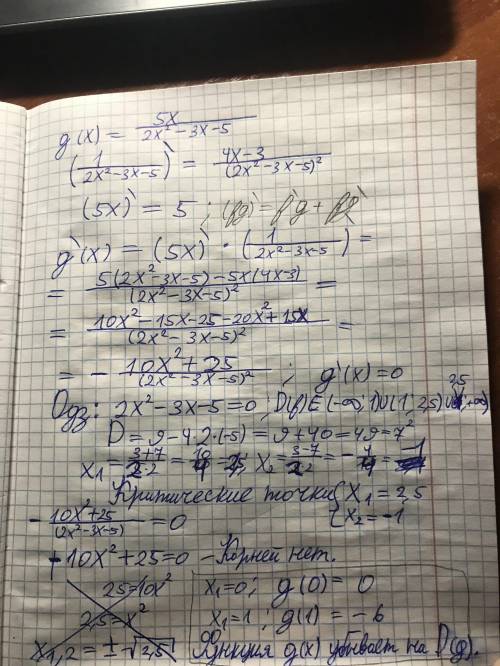 g(x) = 5x / (2x² - 3x - 5)
(1 / (2x² - 3x - 5))` = (4x - 3) / (2x² - 3x - 5)²
(5x)` = 5 ; (fg)` = f`g + fg`
g`(x) = (5x)` · (1 / (2x² - 3x - 5)) =
= (5(2x² - 3x - 5) - 5x(4x - 3)) / (2x² - 3x - 5)² =
= (10x² - 15x - 25 - 20x² + 15x) / (2x² - 3x - 5)² =
= - (10x² + 25) / (2x² - 3x - 5)² ; g`(x) = 0
Одз: 2x² - 3x - 5 = 0 ; D(f) ∈ (-∞, 1) U (1, 2,5) U (2,5; +∞)
D = 9 - 4·2·(-5) = 9 + 40 = 49 = 7²
x₁ = (3+7) / 2·2 = 10/4 = 2,5 x₂ = (3-7) / 2·2 = - 4/4 = -1
Критические точки { x₁ = 2,5
x₂ = -1
- (10x² + 25) / (2x² - 3x - 5) = 0
- 10x² + 25 = 0 - Корней нет.
25 = 10x²
2,5 = x²
x₁,₂ = ± √2,5
x₁ = 0 ; g(0) = 0
x₁ = 1 ; g(1) = - 6
Функция g(x) убывает на D(g).